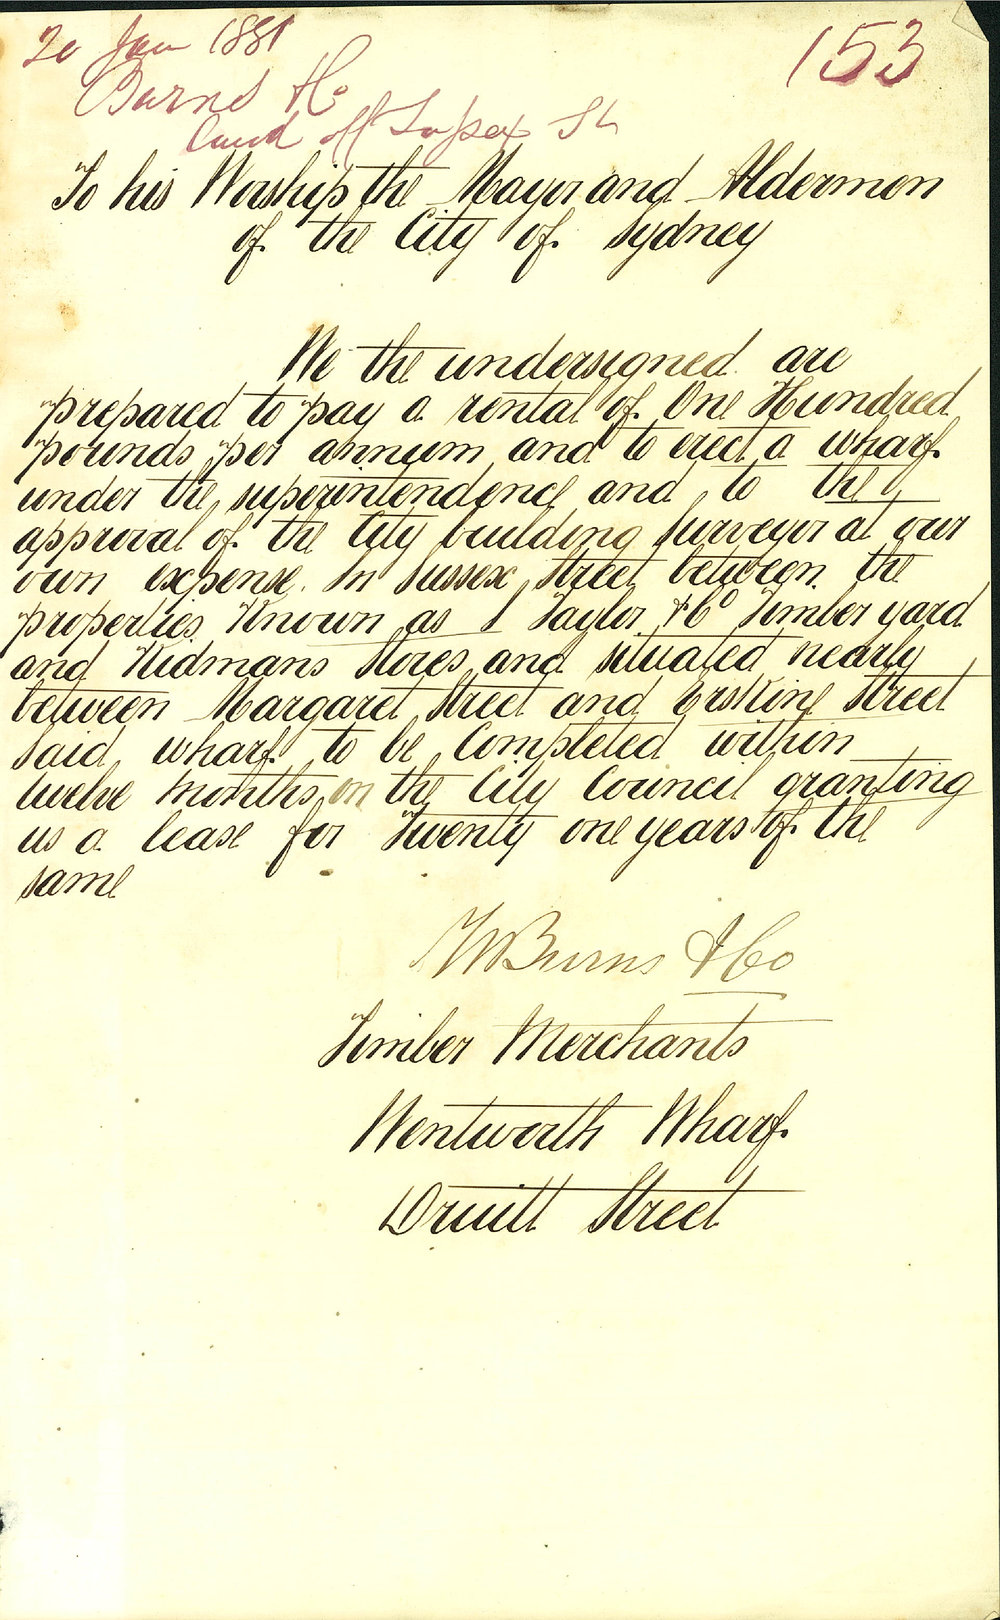 20 Jan 1881
153
Burns H.
Land off Sussex St
To his Worship the Mayor and Aldermen
of the City of Sydney
We the undersigned are
prepared to pay a rental of One Hundred
pounds per annum and to erect a wharf
under the superintendence and to the
approval of the City building Surveyor at our
own expense. In Sussex Street between the
properties Known as J Taylor & Co Timber yard
and Kidmans Stores and situated nearly
between Margaret Street and Erskine Street
Said wharf to be Completed within
twelve Months on the City Council granting
us a lease for Twenty one years of the
same
W Burns & Co
Timber Merchants
Wentworth Wharf
Druitt Street